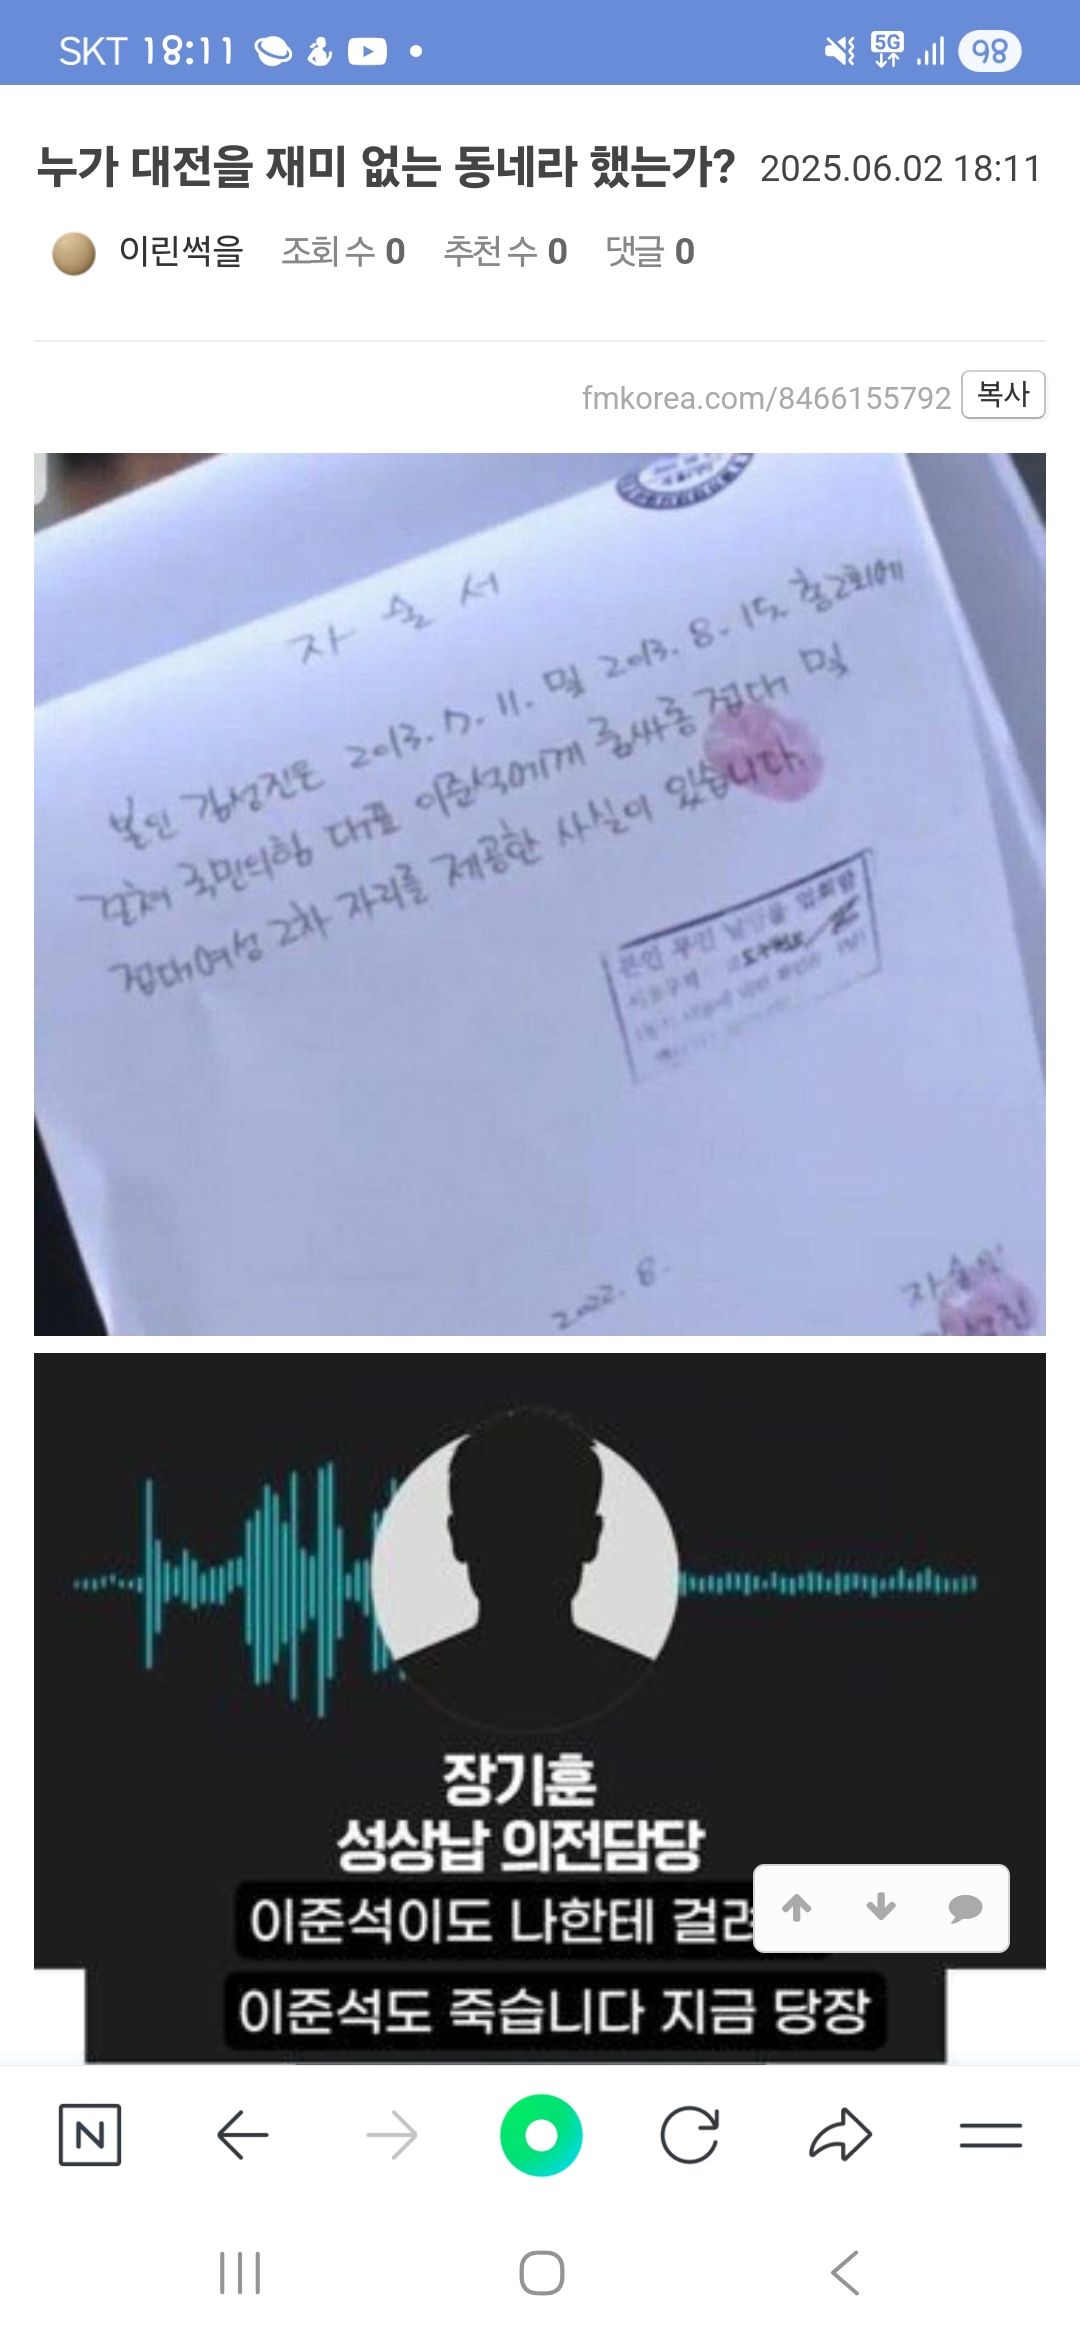 SKT 18:11
5G
98
누가 대전을 재미 없는 동네라 했는가? 2025.06.02 18:11
이린썩을 조회 수 0 추천 수 0 댓글 0
fmkorea.com/8466155792 복사
자 술 서
본인 김성진은 2013. 7. 11. 및 2013. 8. 15. 총2회에
걸쳐 국민의힘 대표 이준석에게 룸싸롱 접대 및
접대여성 2차 자리를 제공한 사실이 있습니다.
본인 무인
2022. 8.
자술인
장기훈
성상납 의전담당
이준석이도 나한테
이준석도 죽습니다 지금 당장
N